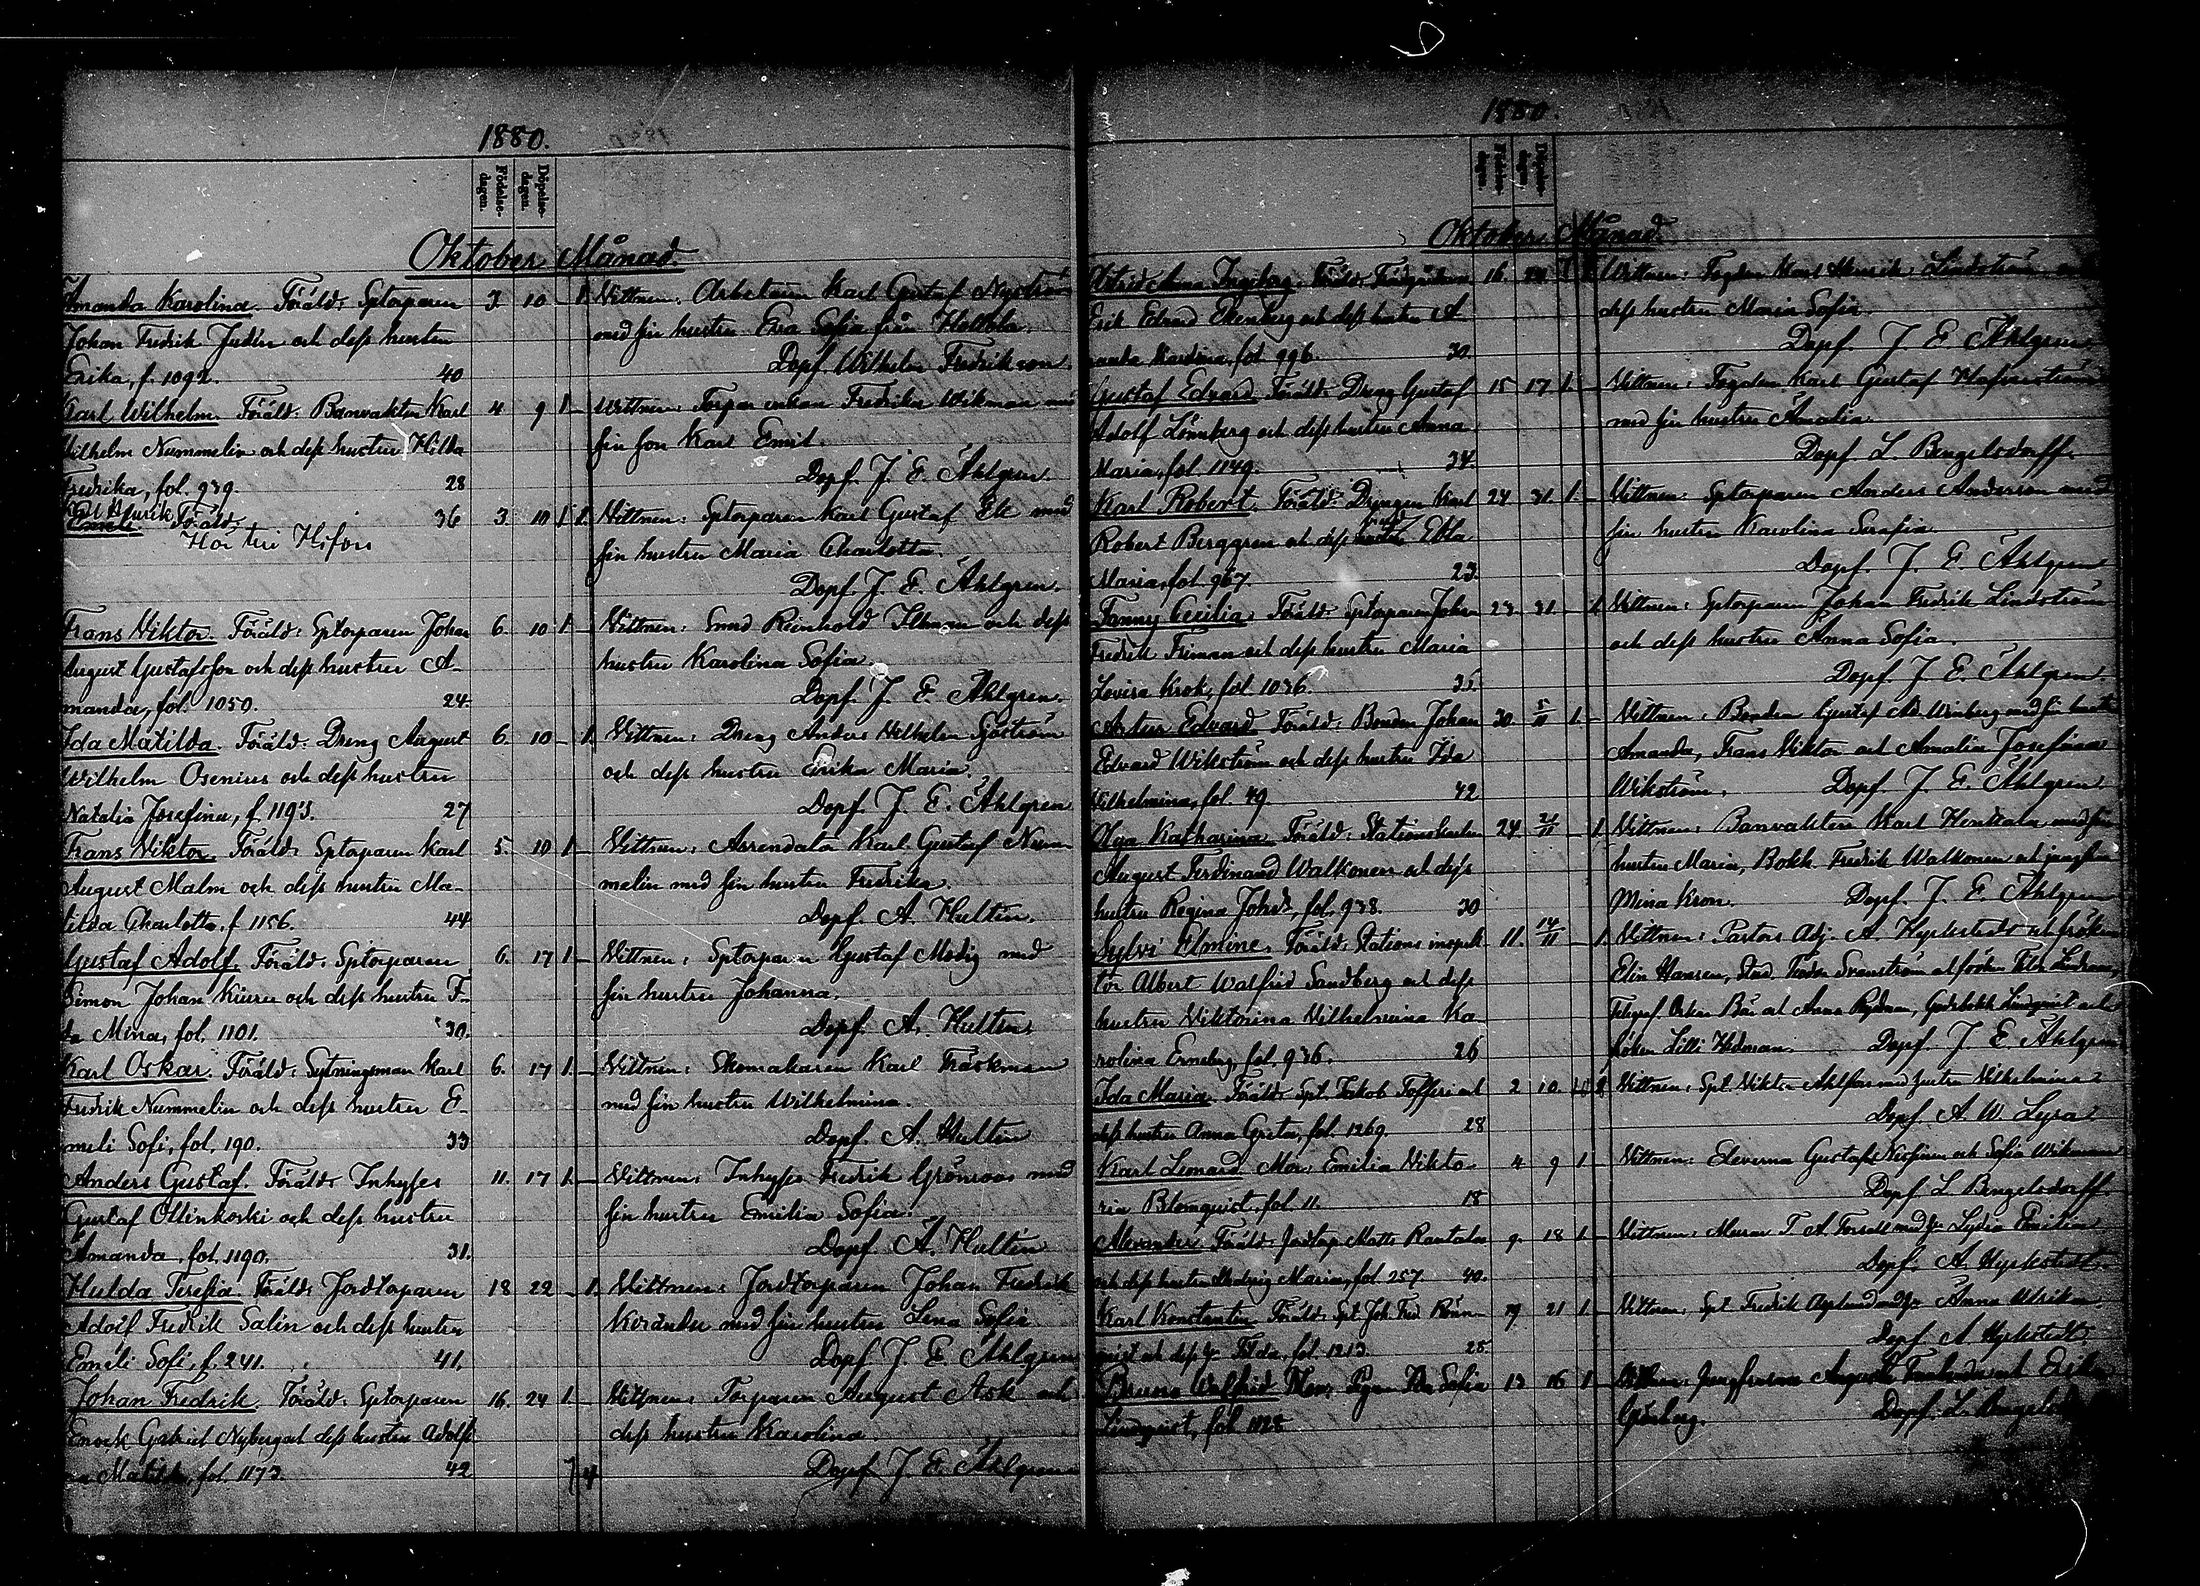 1880.
Födelse-dagen.
Döpelse-dagen.
Oktober Månad.
Amanda Karolina. Föräld: Sptorparen 3 10 – 1. Vittnen: Arbetaren Karl Gustaf Nyström
Johan Fredrik Judin och dess hustru med sin hustru Eva Sofia från
Erika, f. 1092. 40 Dopf. Wilhelm Fredrikson.
Karl Wilhelm. Föräld: Banvakten Karl 4. 9 1 – Vittnen: Torpar enkan Fredrika Wikman med
Wilhelm Nummelin och dess hustru Hilda sin son Karl Emil.
Fredrika, fol. 939. 28 Dopf. J. E. Åhlgren.
Karl Henrik
Emeli Föräld: 36 3 10 1 1. Vittnen: Sptorparen Karl Gustaf Ek med
Hör till H:fors sin hustru Maria Charlotta.
Dopf. J. E. Åhlgren.
Frans Viktor. Föräld: Sptorparen Johan 6. 10 1 – Vittnen: Smed Reinhold Ekman och dess
August Gustafsson och dess hustru A- hustru Karolina Sofia.
manda, fol. 1050. 24 Dopf. J. E. Åhlgren.
Ida Matilda. Föräld: Dreng August 6. 10 – 1. Vittnen: Dreng Anders Wilhelm Sjöström
Wilhelm Osenius och dess hustru och dess hustru Erika Maria.
Natalia Josefina, f. 1193. 27 Dopf. J. E. Åhlgren
Frans Viktor. Föräld: Sptorparen Karl 5. 10 1 – Vittnen: Arrendator Karl Gustaf Num-
August Malm och dess hustru Ma- melin med sin hustru Fredrika.
tilda Charlotta, f. 1156. 44 Dopf. A. Hultin.
Gustaf Adolf. Föräld: Sptorparen 6. 17 1 – Vittnen: Sptorparen Gustaf Modig med
Simon Johan Kiuru och dess hustru I- sin hustru Johanna.
da Mina, fol. 1101. 30. Dopf. A. Hultin
Karl Oskar. Föräld: Sytningsman Karl 6. 17 1. – Vittnen: Skomakaren Karl Träskman
Fredrik Nummelin och dess hustru E- med sin hustru Wilhelmina.
meli Sofi, fol. 190. 33 Dopf. A. Hultin
Anders Gustaf. Föräld: Inhyses 11. 17 1. – Vittnen: Inhyses Fredrik Grönroos med
Gustaf Ollinkoski och dess hustru sin hustru Emilia Sofia.
Amanda, fol. 1190. 31. Dopf. A. Hultin
Hulda Teresia. Föräld: Jordtorparen 18 22 – 1. Vittnen: Jordtorparen Johan Fredrik
Adolf Fredrik Salin och dess hustru med sin hustru Lena Sofia
Emeli Sofi, f. 241. 41. Dopf. J. E. Åhlgren
Johan Fredrik. Föräld: Sptorparen 16. 24 1. – Vittnen: Torparen August Ask och
Enock Gabriel Nyberg och dess hustru Adolfi- dess hustru Karolina.
na Matilda, fol. 1173. 42 7 4 Dopf. J. E. Åhlgren
1880.
Födelse-dagen.
Döpelse-dagen.
Oktober Månad.
Astrid Anna Ingeborg. Föräld: 16. 24 – 1 Vittnen: Fogden Karl Henrik Lindström och
Erik Edvard Ekenberg och dess hustru A- dess hustru Maria Sofia.
manda Karolina, fol. 996. 30. Dopf. J. E. Åhlgren
Gustaf Edvard. Föräld: Dreng Gustaf 15 17 1. – Vittnen: Fogden Karl Gustaf Hafverström
Adolf Lönnberg och dess hustru Anna med sin hustru Amalia.
Maria, fol. 1149. 34. Dopf. L. Bengelsdorff.
Karl Robert. Föräld: Drengen Karl 24 31. 1. – Vittnen: Sptorparen Anders Anderson med
Robert Berggren och dess hustru Edla sin hustru Karolina Serafia
Maria, fol. 967. 23. Dopf. J. E. Åhlgren
Fanny Cecilia. Föräld: Sptorparen Johan 23. 31. – 1 Vittnen: Sptorparen Johan Fredrik Lindström
Fredrik Friman och dess hustru Maria och dess hustru Anna Sofia.
Lovisa Krok, fol. 1036. 35. Dopf. J. E. Åhlgren.
Artur Edvard. Föräld: Bonden Johan 30. 5/11 1. – Vittnen: Bonden Gustaf Ad. Winberg med sin hustru
Edvard Wikström och dess hustru Ida Amanda, Frans Viktor och Amalia Josefina
Wilhelmina, fol. 49 42 Wikström. Dopf. J. E. Åhlgren
Olga Katharina. Föräld: Stationskarlen 24 21/11 – 1 Vittnen: Banvakten Karl Henttala med sin
August Ferdinand Walkonen och dess hustru Maria, Bokh. Fredrik Walkonen och jungfrun
hustru Regina Johsd., fol. 938. 30 Mina Kron. Dopf. J. E. Åhlgren
Sylvi Elmine. Föräld: Stations inspek- 11. 14/11 – 1. Vittnen: Pastors Adj. A. Hyrkstedt och fröken
tor Albert Walfrid Sandberg och dess Elin Hansen, Stud. Svanström och fröken
hustru Viktorina Wilhelmina Ka- Telegraf. Bär och Anna Lindqvist och
rolina Ernberg, fol. 936. 26 fröken Lilli Hedman. Dopf. J. E. Åhlgren
Ida Maria. Föräld: Spt. Jakob och 2 10. Vittnen: Spt. Viktor Ahlfors med hustru Wilhelmina
dess hustru Anna Greta, fol. 1269. 28 Dopf. A. W. Lyra
Karl Leonard. Mor: Emilia Vikto- 4 9 1 – Vittnen: Eleverna Gustaf och Sofia Wikman
ria Blomquist, fol. 11. 18 Dopf. L. Bengelsdorff.
Alexander. Föräld: Jordtorp. Matts Rantala 9. 18 1 – Vittnen: T. A. Forsell med h. Lydia Emilia
och dess hustru Hedvig Maria, fol. 257. 40. Dopf. A. Hyrkstedt.
Karl Konstantin Föräld: Spt. Joh. Fred. Rönn- 19 21 1 – Vittnen: Spt. Fredrik Asplund med h. Anna Ulrika.
qvist och dess h. Ida, fol. 1213. 25. Dopf. A. Hyrkstedt
Bruno Walfrid Mor: Pigan Ida Sofia 13 16 1 – Vittnen: Jungfrurna Augusta och
Lindqvist, fol. 1128 Göösberg. Dopf. L. Bengelsdorff